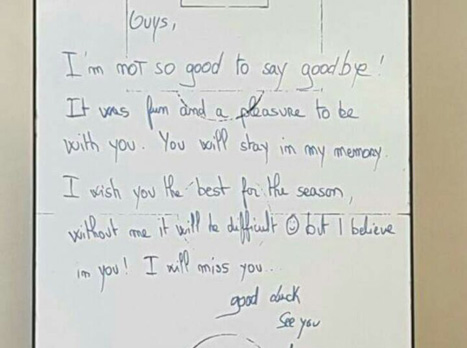 Guys,
I'm not so good to say goodbye!
It was fun and a pleasure to be
with you. You will stay in my memory.
I wish you the best for the season,
without me it will be difficult ☺ but I believe
in you! I will miss you...
good luck
See you